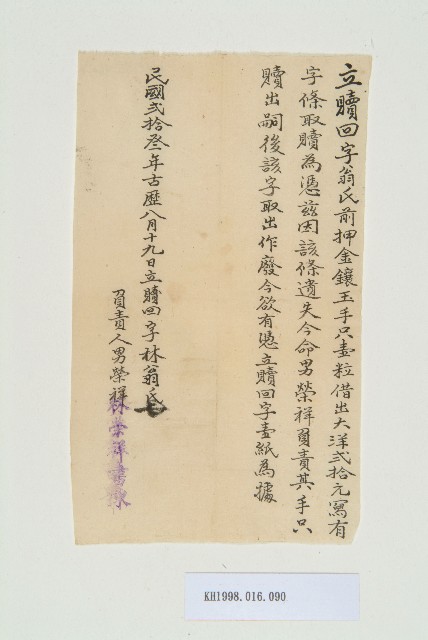 立贖回字翁氏前押金鑲玉手只壹粒借出大洋貳拾元寫有
字條取贖為憑茲因該條遺失今命男榮祥負責其手只
贖出嗣後該字取出作廢今欲有憑立贖回字壹紙為據
民國貳拾叁年古歷八月十九日立贖回字林翁氏
負責人男榮祥
林榮祥書柬
KH1998.016.090